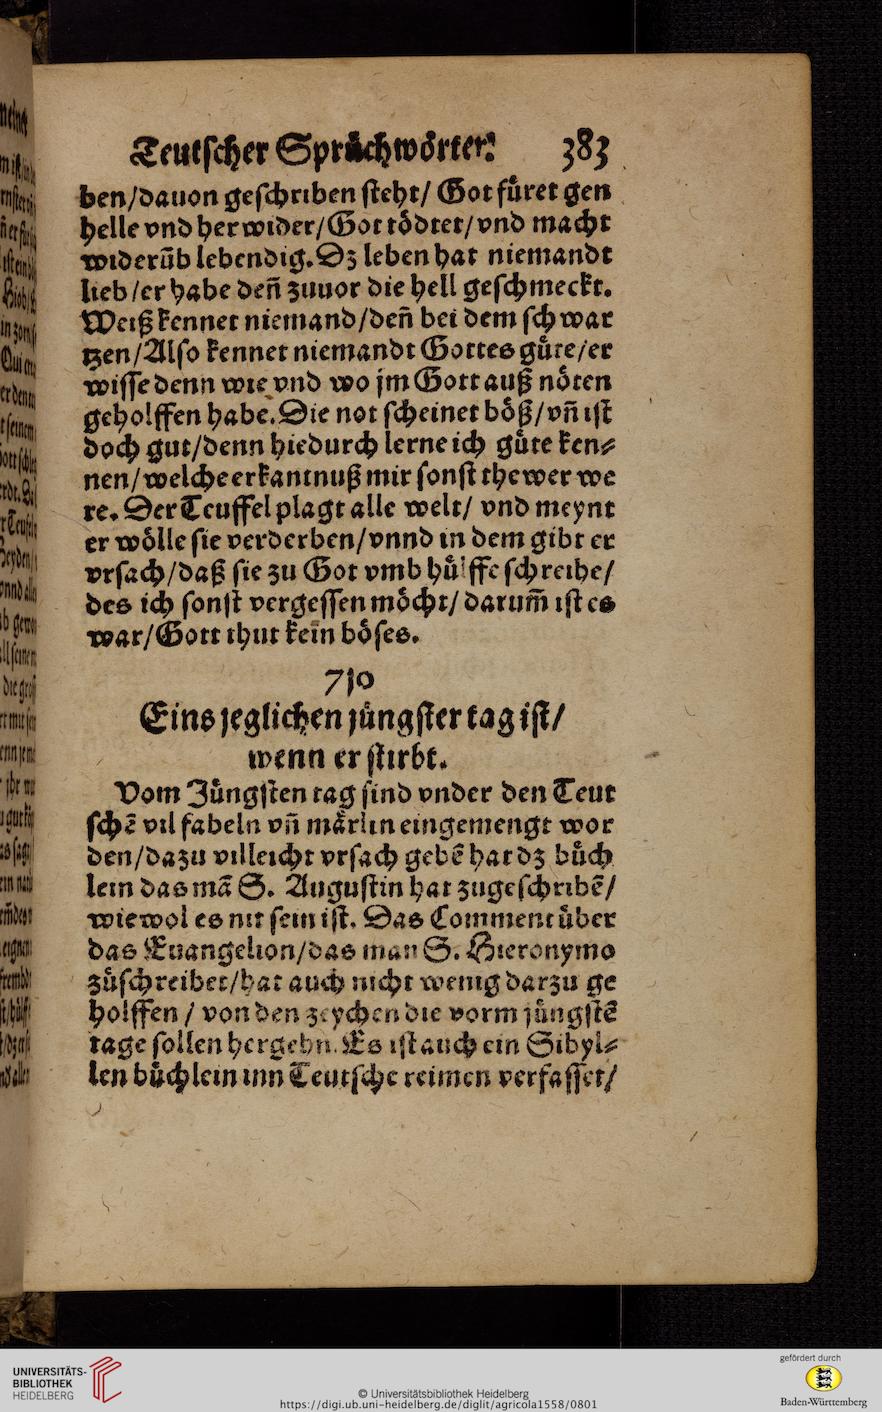 Teutscher Sprüchwörter. 383
ben/dauon geschriben steht/ Got füret gen
helle vnd her wider/Got tödtet/vnd macht
widerũb lebendig. Dz leben hat niemandt
lieb/er habe deñ zuuor die hell geschmeckt.
Weiß kennet niemand/deñ bei dem schwar
tzen/Also kennet niemandt Gottes güte/er
wisse denn wie vnd wo jm Gott auß nöten
geholffen habe. Die not scheinet böß/vñ ist
doch gut/denn hiedurch lerne ich güte ken⸗
nen/welche erkantnuß mir sonst thewer we
re. Der Teuffel plagt alle welt/ vnd meynt
er wölle sie verderben/vnnd in dem gibt er
vrsach/daß sie zu Got vmb hülffe schreihe/
des ich sonst vergessen möcht/ darum̃ ist es
war/Gott thut kein böses.
710
Eins jeglichen jüngster tag ist/
wenn er stirbt.
Vom Jüngsten tag sind vnder den Teut
schẽ vil fabeln vñ märlin eingemengt wor
den/dazu villeicht vrsach gebẽ hat dz büch
lein das mã S. Augustin hat zugeschribẽ/
wiewol es nit sein ist. Das Comment über
das Euangelion/das man S. Hieronymo
züschreibet/hat auch nicht wenig darzu ge
holffen / von den zeychen die vorm jüngstẽ
tage sollen hergehn. Es ist auch ein Sibyl⸗
len büchlein inn Teutsche reimen verfasset/
UNIVERSITÄTS-
BIBLIOTHEK
HEIDELBERG
© Universitätsbibliothek Heidelberg
https://digi.ub.uni-heidelberg.de/diglit/agricola1558/0801
gefördert durch
Baden-Württemberg